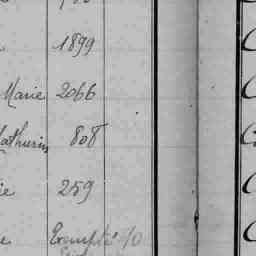 1899
Marie 2066
Mathurin 808
ie 259
e Exempté